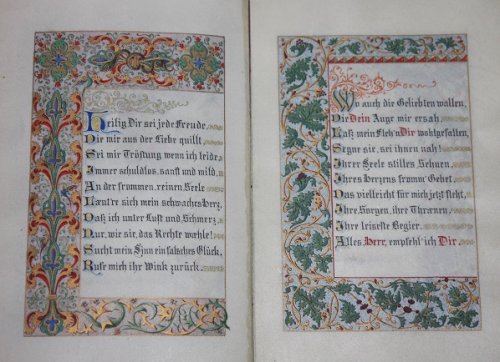 Heilig Dir sei jede Freude,
Die mir aus der Liebe quillt.
Sei mir Tröstung wenn ich leide
Immer schuldlos, sanft und mild.
An der frommen, reinen Seele
Läut're sich mein schwaches Herz,
Daß ich unter Lust und Schmerz
Nur, wie sie, das Rechte wähle!
Sucht mein Sinn ein falsches Glück,
Rufe mich ihr Wink zurück.
Wo auch die Geliebten wallen,
Die Dein Auge mir ersah,
Laß mein Fleh'n Dir wohlgefallen,
Segne sie, sei ihnen nah!
Ihrer Seele stilles Sehnen,
Ihres Herzens fromm' Gebet,
Das vielleicht für mich jetzt fleht,
Ihre Sorgen, ihre Thränen,
Ihre leiseste Begier,
Alles Herr, empfehl' ich Dir